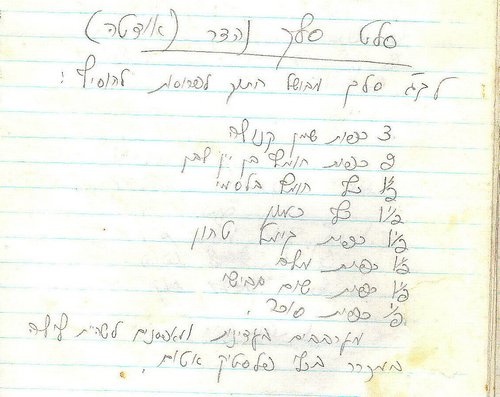 סלט סלק נהדר (אודטה)
לק"ג סלק מבושל חתוך לפרוסות להוסיף:
3 כפות שמן קנולה
2 כפות חומץ בן יין לבן
1/2 כף חומץ בלסמי
1/2 כף כמון
1/2 כפית גימל טחון
1/2 כפית מלח
1/2 כפית שום גבישי
1/2 כפית סוכר.
מערבבים בעדינות ומאפסנים לשהיית לילה
במקרר בכלי פלסטיק אטום.